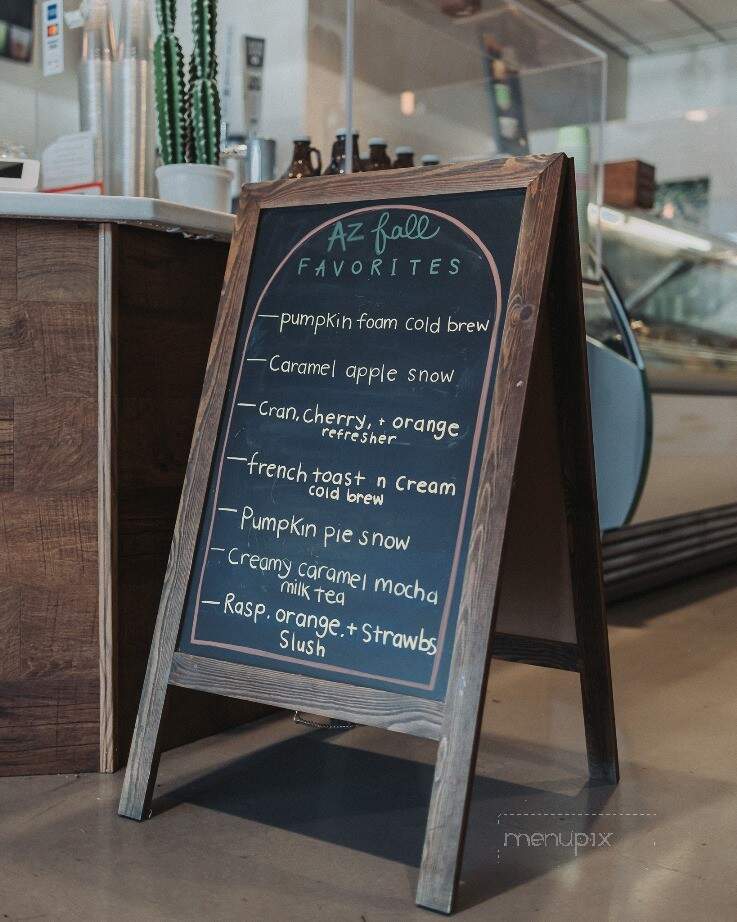 AZ fall
FAVORITES
—pumpkin foam cold brew
—Caramel apple snow
—Cran, Cherry, + orange
refresher
—french toast n cream
cold brew
—Pumpkin pie snow
—Creamy caramel mocha
milk tea
—Rasp. orange. + Strawbs
Slush
menupix